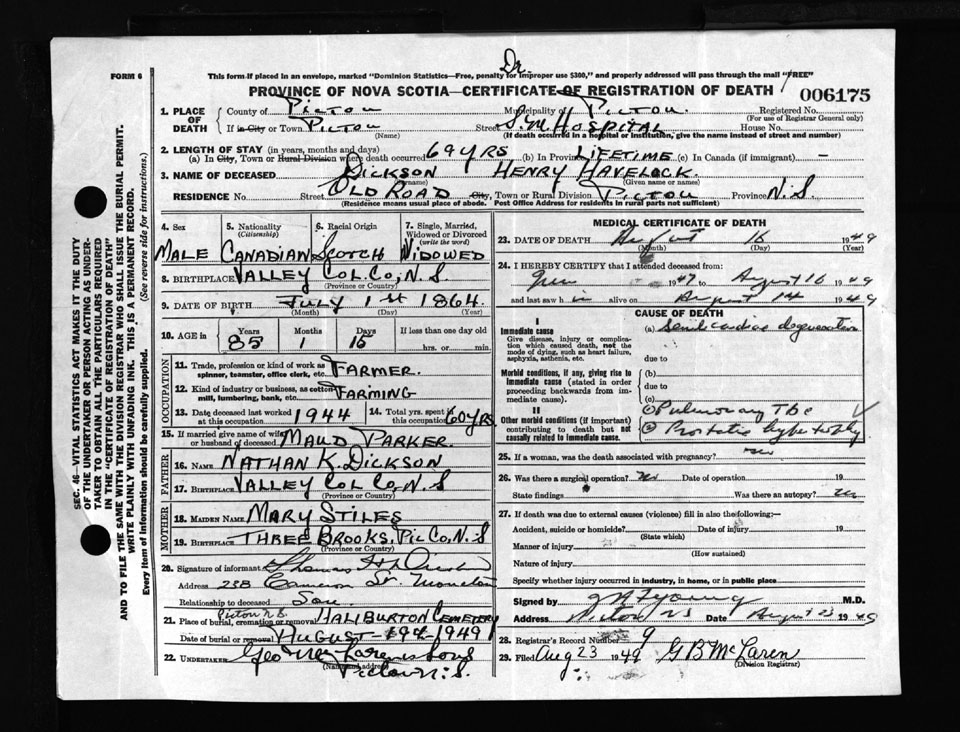 FORM 6
Dr.
This form if placed in an envelope, marked "Dominion Statistics—Free, penalty for improper use $300," and properly addressed will pass through the mail "FREE"
PROVINCE OF NOVA SCOTIA—CERTIFICATE OF REGISTRATION OF DEATH
006175
1. PLACE OF DEATH County of PICTOU Municipality of PICTOU. Registered No.
(For use of Registrar General only)
If in City or Town PICTOU Street S.M. HOSPITAL House No.
(Name) (If death occurred in a hospital or institution, give the name instead of street and number)
2. LENGTH OF STAY (in years, months and days)
(a) In City, Town or Rural Division where death occurred 69 YRS (b) In Province LIFETIME (c) In Canada (if immigrant) —
3. NAME OF DECEASED DICKSON HENRY HAVELOCK.
(Surname) (Given name or names)
RESIDENCE No. Street OLD ROAD City, Town or Rural Division PICTOU Province N.S.
(Residence means usual place of abode. Post Office Address for residents in rural parts not sufficient)
4. Sex 5. Nationality (Citizenship) 6. Racial Origin 7. Single, Married, Widowed or Divorced (write the word)
MALE CANADIAN SCOTCH WIDOWED
8. BIRTHPLACE VALLEY COL. CO., N.S
(Province or Country)
9. DATE OF BIRTH JULY 1st 1864.
(Month) (Day) (Year)
10. AGE in Years Months Days If less than one day old
85 1 15 hrs. or min.
OCCUPATION
11. Trade, profession or kind of work as spinner, teamster, office clerk, etc. FARMER.
12. Kind of industry or business, as cotton mill, lumbering, bank, etc. FARMING
13. Date deceased last worked at this occupation 1944 14. Total yrs. spent in this occupation 60 YRS
15. If married give name of wife or husband of deceased MAUD PARKER.
FATHER
16. NAME NATHAN K. DICKSON
17. BIRTHPLACE VALLEY COL CO, N.S
(Province or Country)
MOTHER
18. MAIDEN NAME MARY STILES
19. BIRTHPLACE THREE BROOKS, PIC CO, N.S
(Province or Country)
20. Signature of informant Thomas
Address 238 Cameron St. Moncton
Relationship to deceased Son.
Picton N.S.
21. Place of burial, cremation or removal HALIBURTON CEMETERY
Date of burial or removal AUGUST 19th 1949
22. UNDERTAKER Geo McLaren & Sons
(Name and address)
Pictou N.S.
MEDICAL CERTIFICATE OF DEATH
23. DATE OF DEATH August 16 1949
(Month) (Day) (Year)
24. I HEREBY CERTIFY that I attended deceased from
1947 to August 16 1949
and last saw h im alive on August 14 1949
CAUSE OF DEATH
I
Immediate cause
Give disease, injury or complication which caused death, not the mode of dying, such as heart failure, asphyxia, asthenia, etc.
(a) Senile cardiac degeneration
due to
Morbid conditions, if any, giving rise to immediate cause (stated in order proceeding backwards from immediate cause).
(b)
due to
(c)
II
Other morbid conditions (if important) contributing to death but not causally related to immediate cause.
① Pulmonary Tbc
② Prostatic hypertrophy
25. If a woman, was the death associated with pregnancy? no
26. Was there a surgical operation? no Date of operation 19
State findings Was there an autopsy? no
27. If death was due to external causes (violence) fill in also the following:—
Accident, suicide or homicide? Date of injury 19
(State which)
Manner of injury
(How sustained)
Nature of injury
Specify whether injury occurred in industry, in home, or in public place
Signed by Young M.D.
Address Pictou N S Date August 23 1949
28. Registrar's Record Number 9
29. Filed Aug 23 1949 G B McLaren
(Division Registrar)
SEC. 46—VITAL STATISTICS ACT MAKES IT THE DUTY OF THE UNDERTAKER OR PERSON ACTING AS UNDERTAKER TO OBTAIN ALL THE PARTICULARS REQUIRED IN THE "CERTIFICATE OF REGISTRATION OF DEATH" AND TO FILE THE SAME WITH THE DIVISION REGISTRAR WHO SHALL ISSUE THE BURIAL PERMIT.
WRITE PLAINLY WITH UNFADING INK. THIS IS A PERMANENT RECORD.
Every item of information should be carefully supplied. (See reverse side for instructions.)